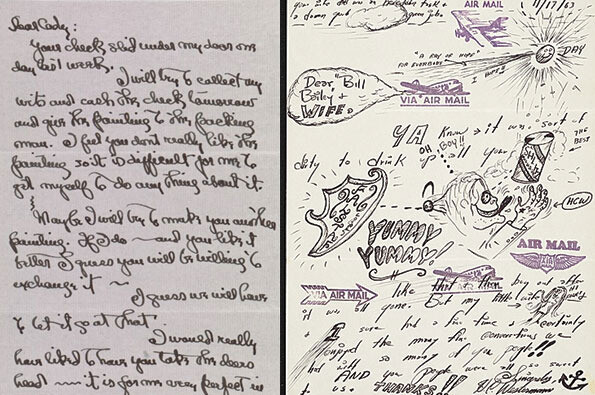 Dear Cady:
Your check slid under my door one
day last week.
I will try to collect my
wits and cash the check tomorrow
and give the painting to the packing
man. I feel you don't really like this
painting so it is difficult for me to
get myself to do any thing about it.
Maybe I will try to make you another
painting. If I do — and you like it
better I guess you will be willing to
exchange it ~
I guess we will have
to let it go at that.
I would really
have liked to have you take the deers
head ~ it is for me very perfect in
AIR MAIL
11/17/63
a damn good
"A RAY OF HOPE"
FOR EVERYBODY
I HOPE!
DAY
Dear "Bill
Bailey +
WIFE
VIA AIR MAIL
YA Know it was sort of
OH BOY!!
THE BEST
dity to drink up all your
HCW
YUMMY
YUMMY!
AIR MAIL
VIA AIR MAIL
like
buy out after
gone. But my little wife
I sure had a fine time & certainly
enjoyed the many fine conversations we
had with so many of you people!!
AND you people were all so sweet
to us. THANKS!!
Sincerely,
H.C. Westermann